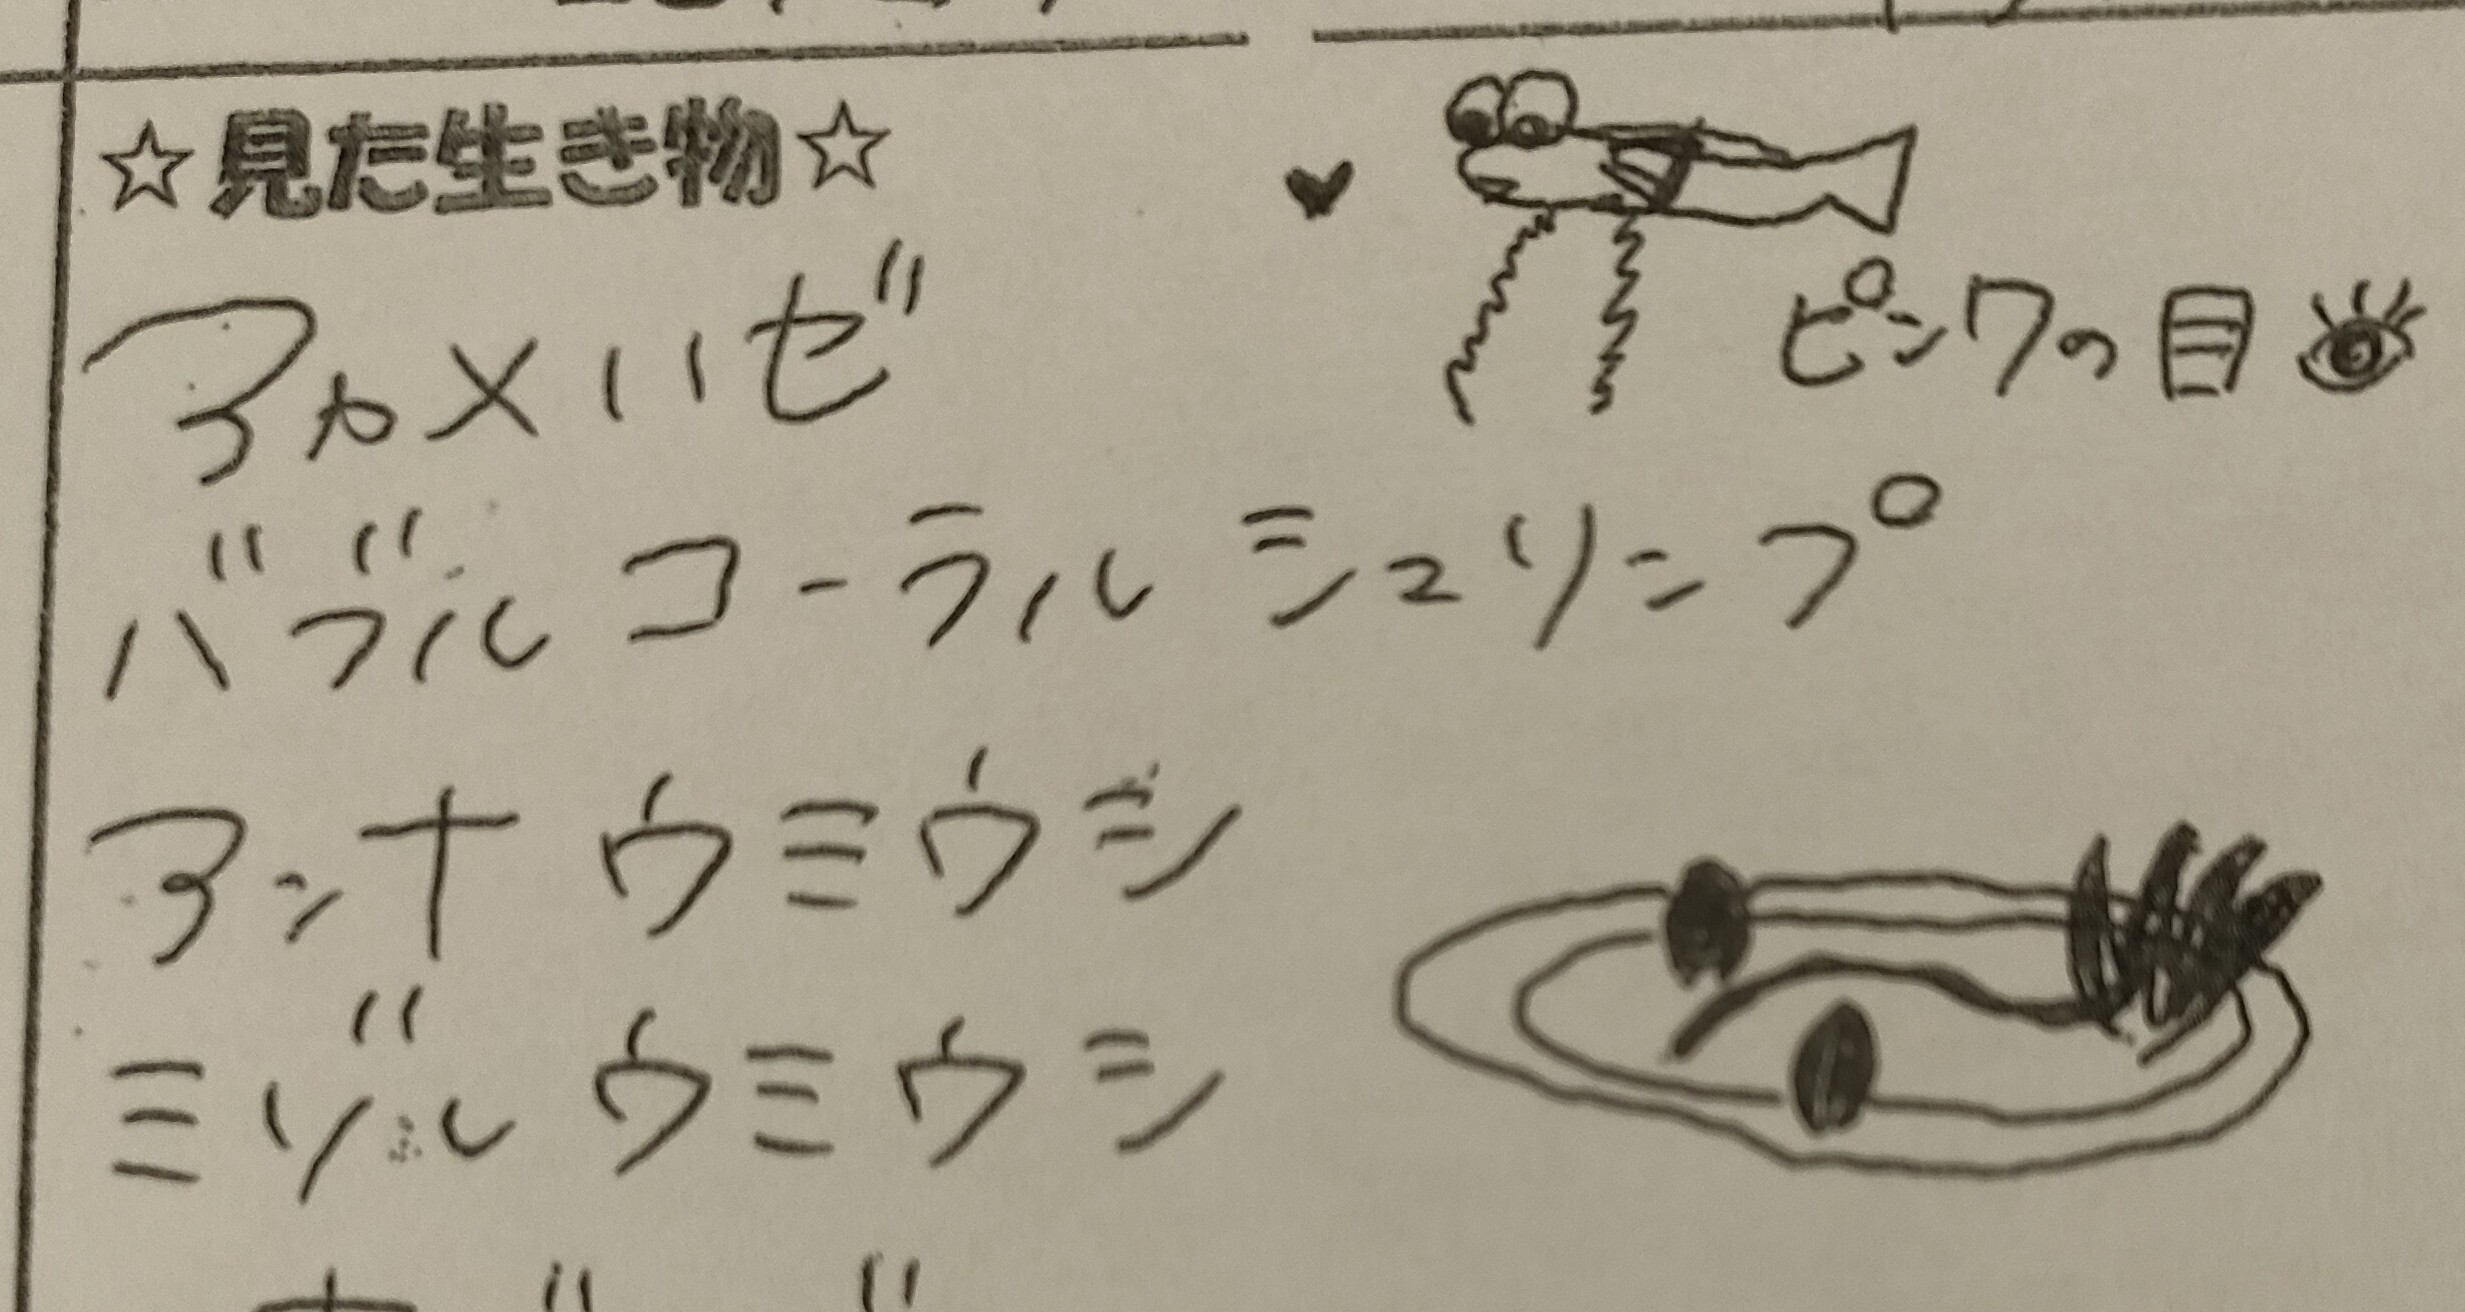 ☆見た生き物☆
アカメハゼ
ピンクの目
バブルコーラルシュリンプ
アンナウミウシ
ミゾレウミウシ